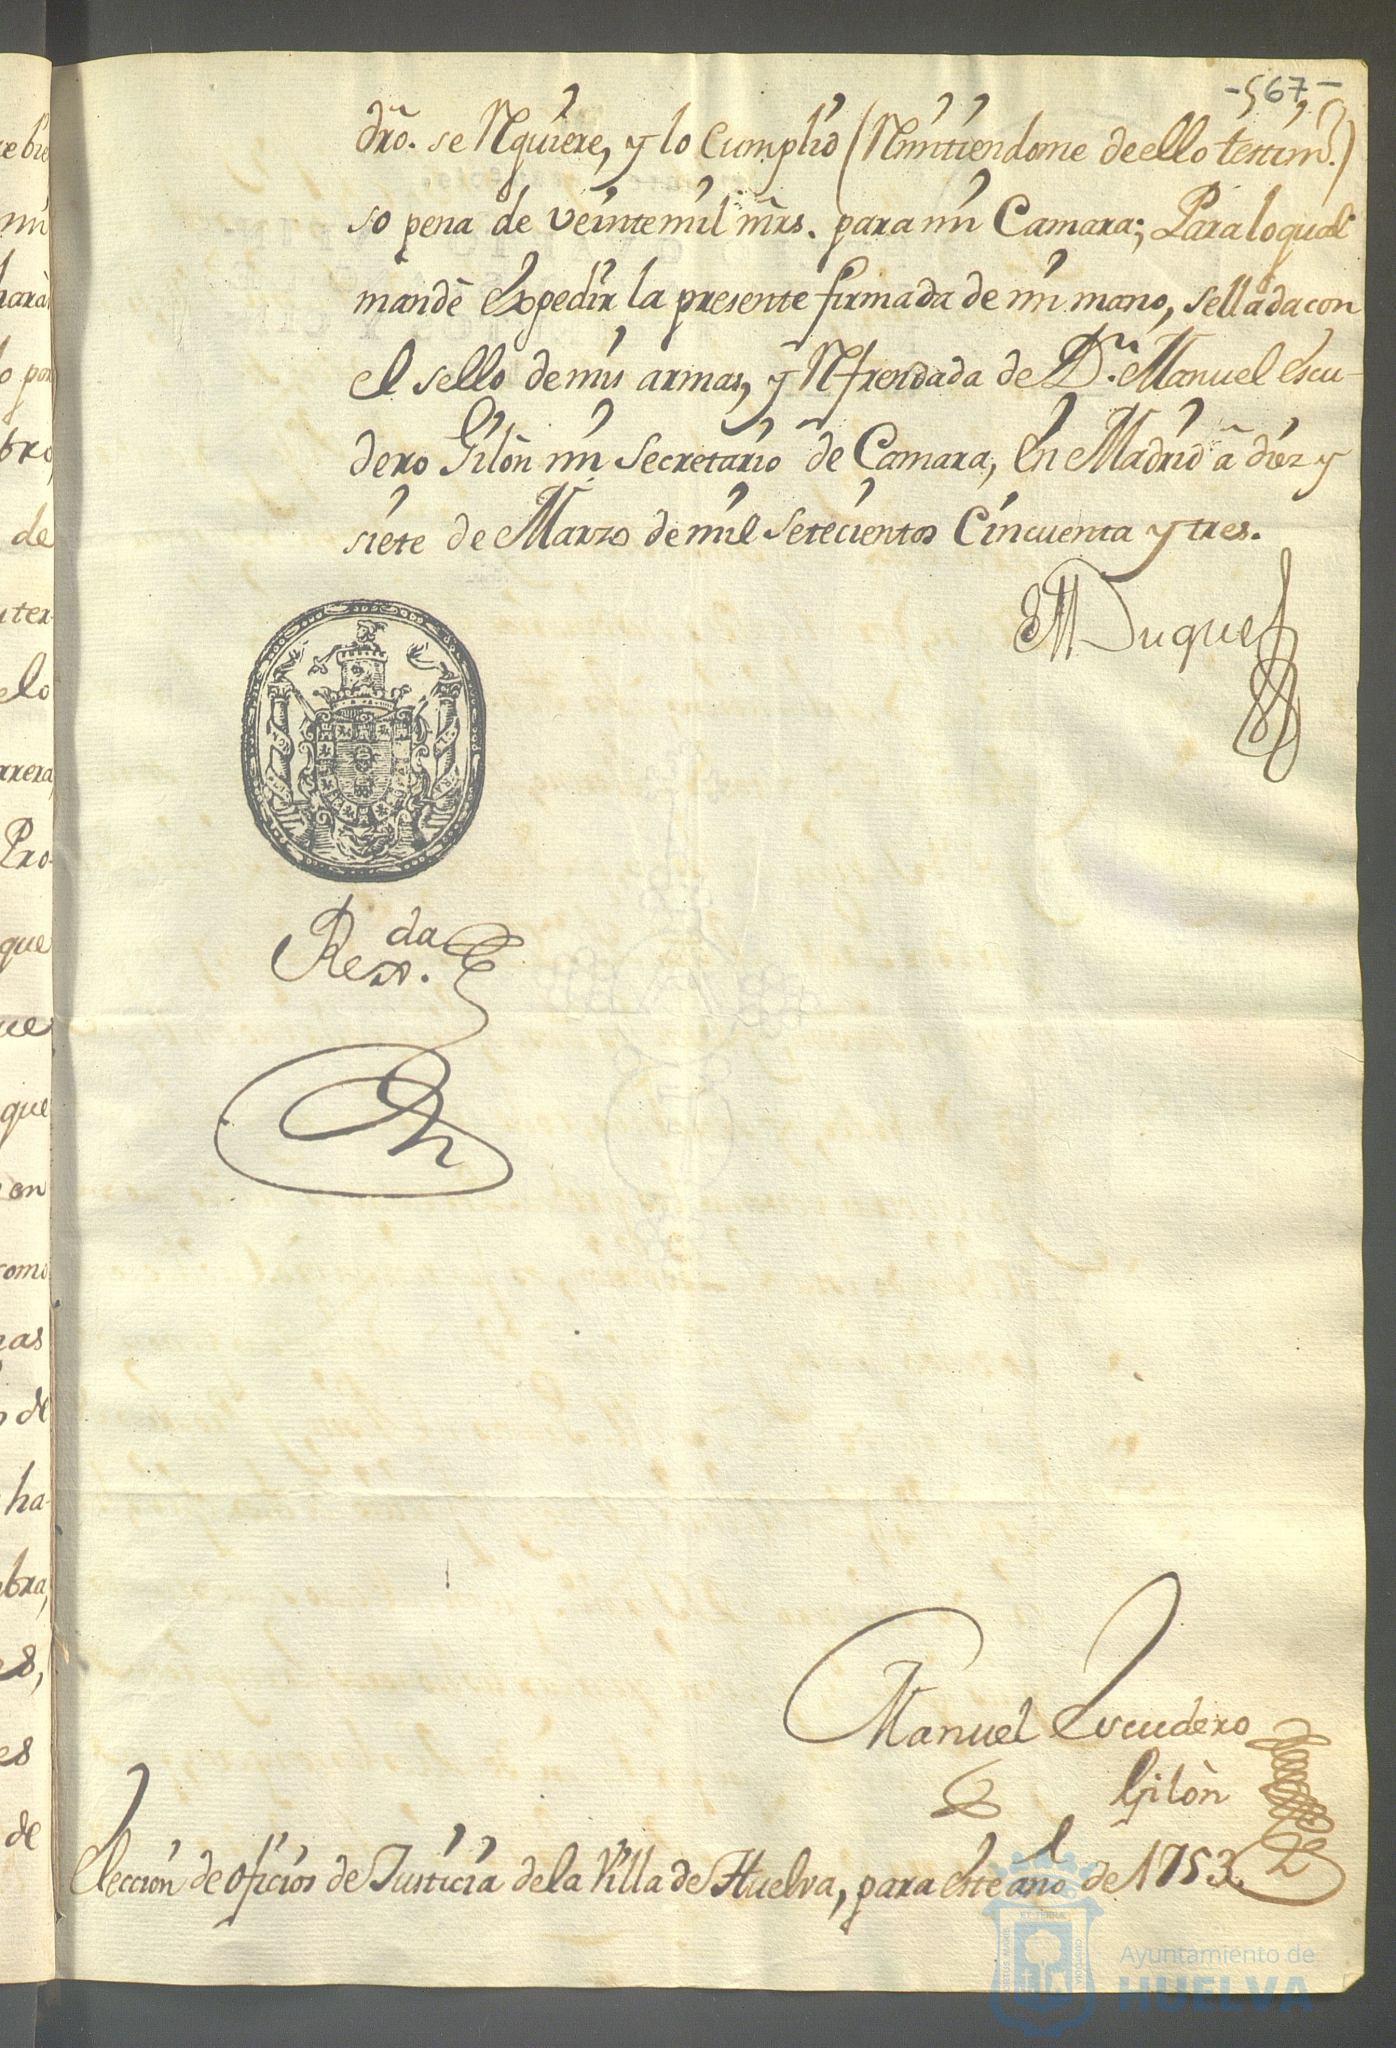 -567-
dro. se Rquiere, y lo Cumplid (Rmitiendome de ello testimo.)
so pena de veinte mil mrs. para mi Camara; Para lo qual
mandè Expedir la presente firmada de mi mano, sellada con
el sello de mis armas, y Rfrendada de Dn. Manuel Escu-
dero Gilòn mi Secretario de Camara, En Madrid à diez y
siete de Marzo de mil setecientos Cincuenta y tres.
El Duque
Rexda.
Manuel Escudero
Gilòn
Eleccion de oficios de Justicia de la Villa de Huelva, para este año de 1753.
Ayuntamiento de
HUELVA